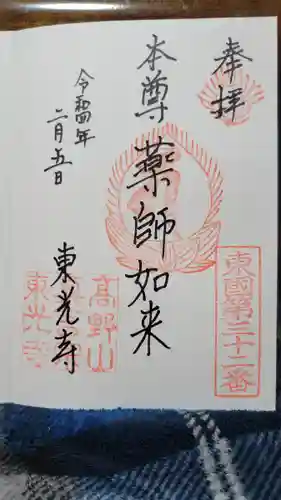 奉拝
本尊
薬師如来
令和四年
二月五日
東光寺
東國第二十二番
高野山
東光寺